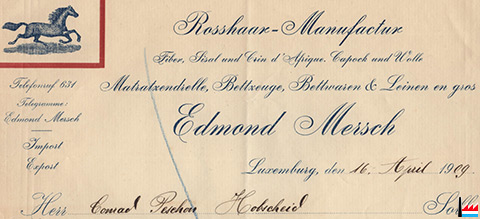 Rosshaar-Manufactur
Fiber, Sisal und Crin d'Afrique, Capock und Wolle
Matratzendrelle, Bettzeuge, Bettwaren & Leinen en gros
Edmond Mersch
Telefonruf 631
Telegramme:
Edmond Mersch
Import
Export
Luxemburg, den 16. April 1909.
Herr Conrad Peschon Hobscheid Soll